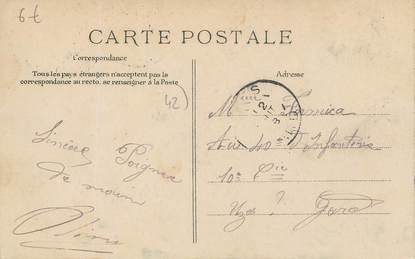 6€
CARTE POSTALE
Correspondance
Tous les pays étrangers n'acceptent pas la
correspondance au recto, se renseigner à la Poste
Adresse
42
Sincère Poignée
de main
M
Au 40e d'Infanterie
10e Cie
Uzès ? Gard